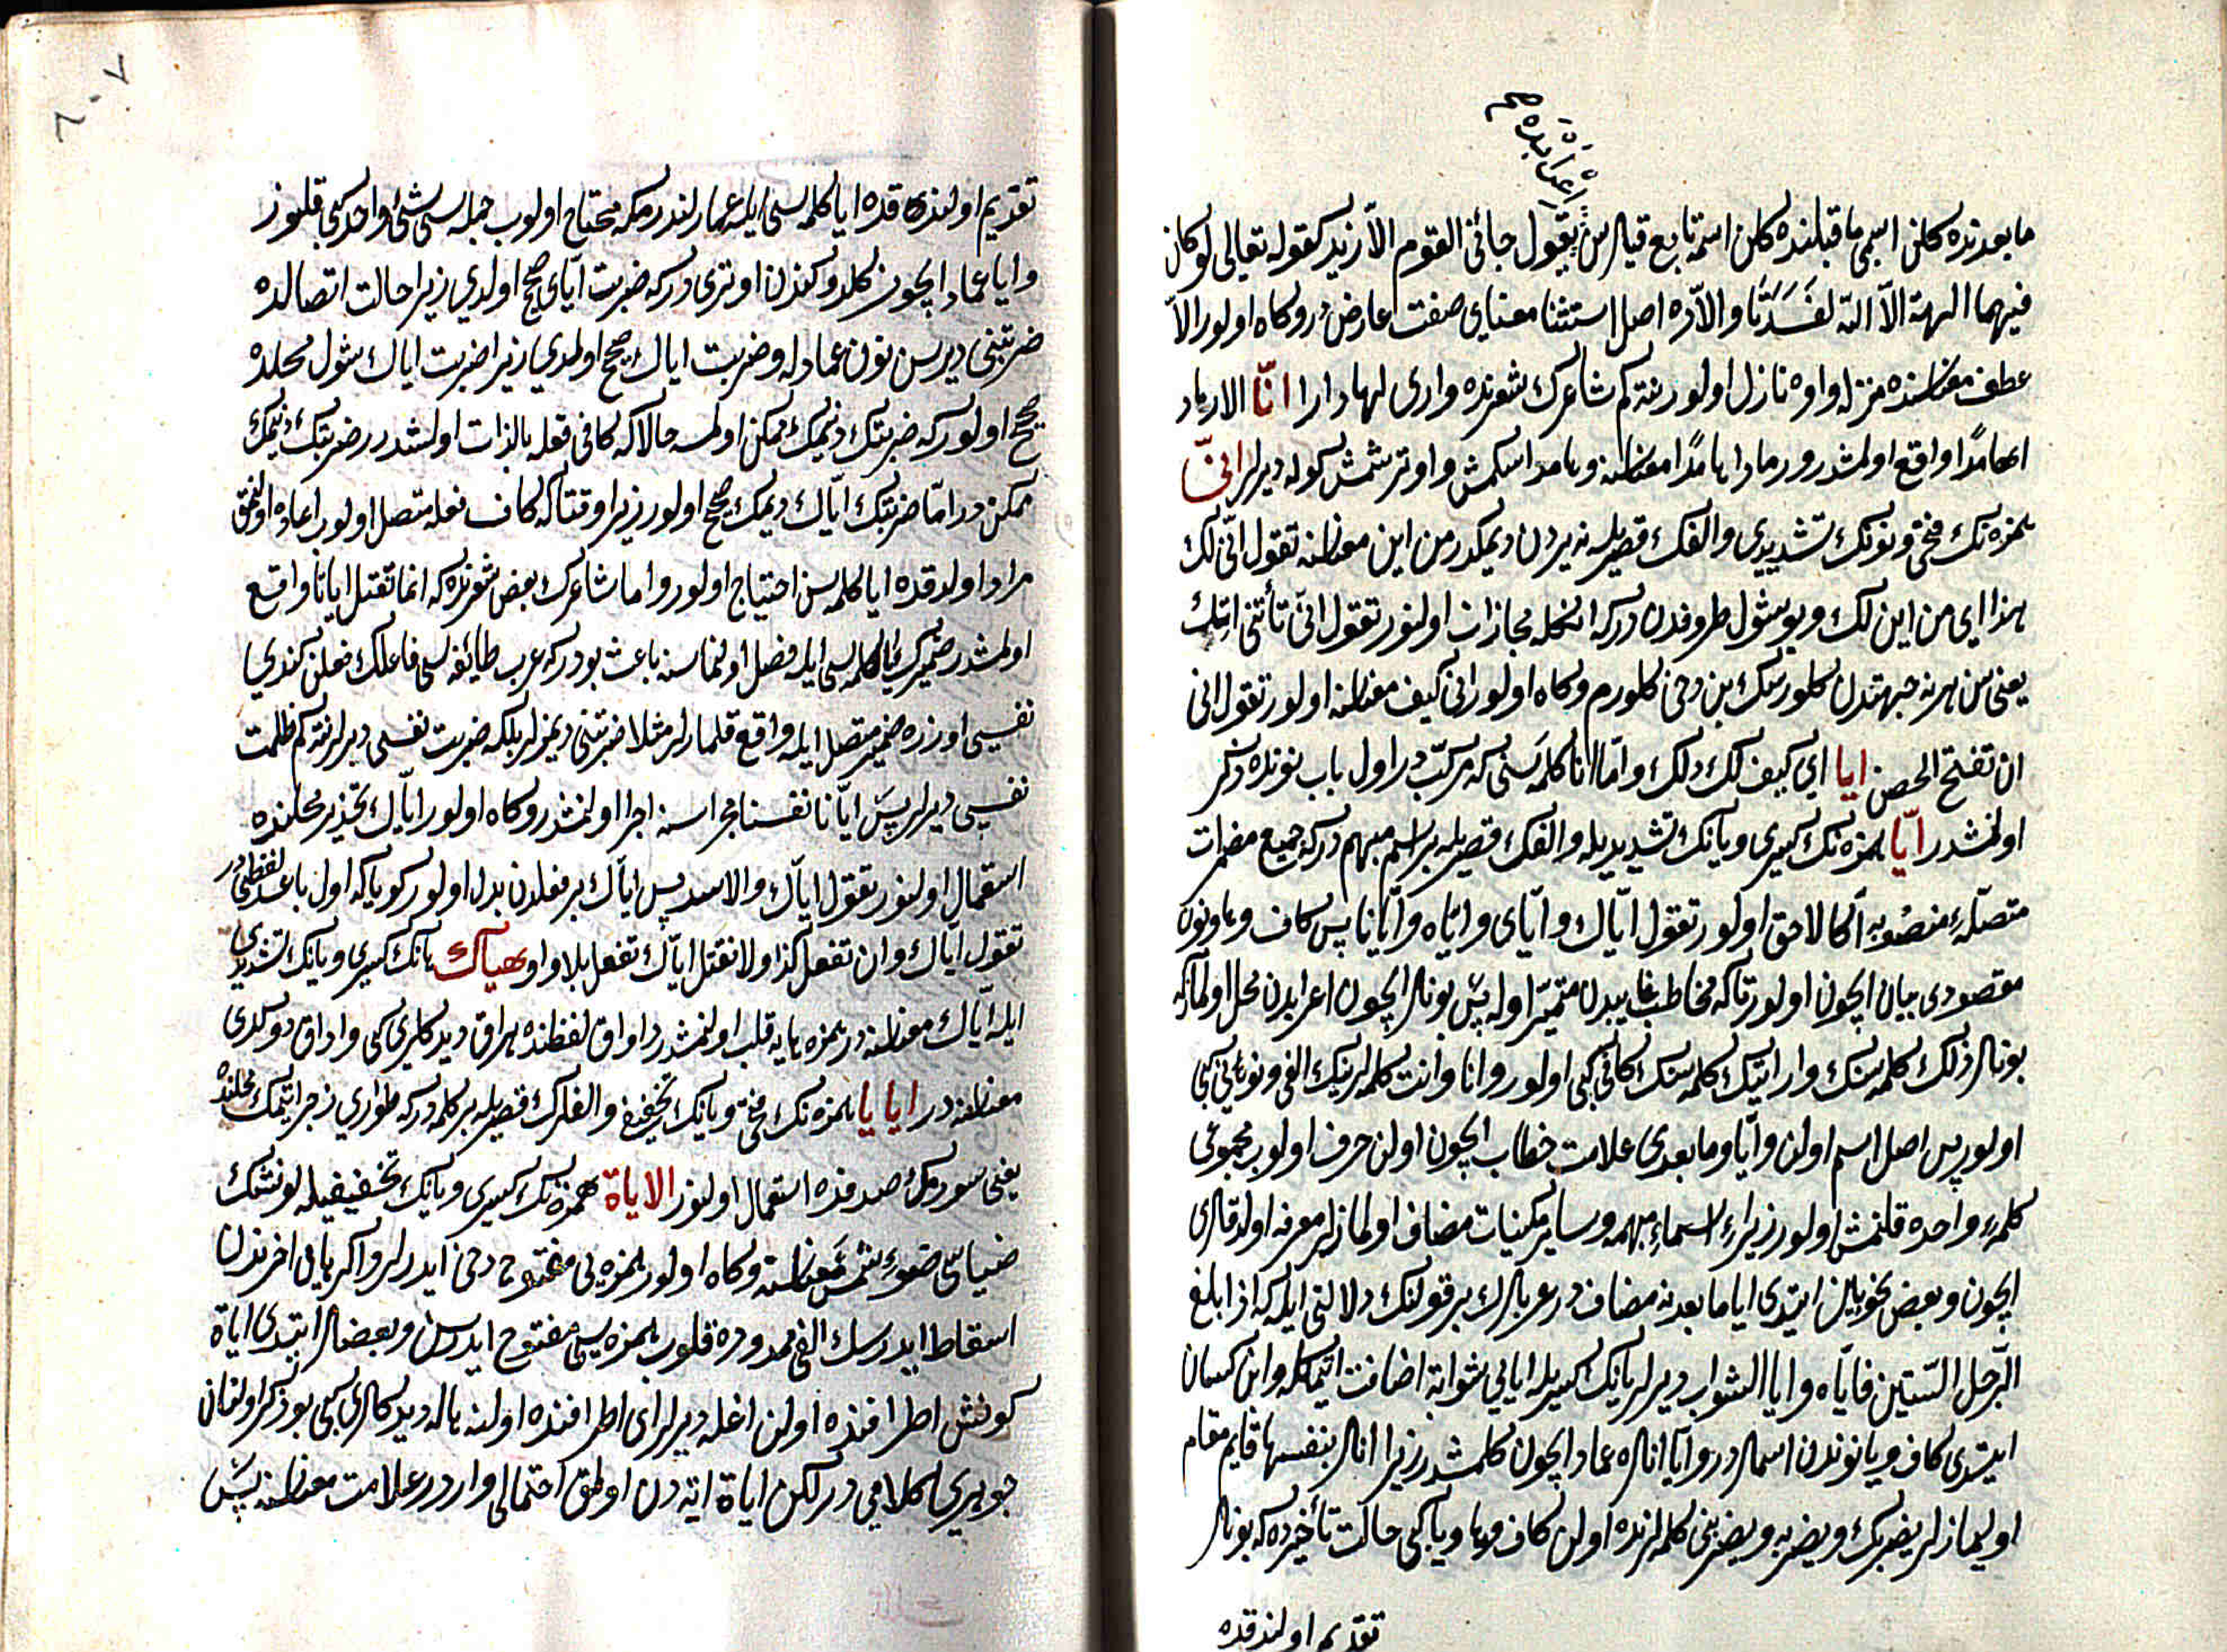 اعرابده صح
ما بعدنده كلن اسمی ما قبلنده كلن اسمه تابع قیلرسن تقول جائنی القوم الّا زید كقوله تعالی لو كان
فیهما الهة الّا الله لفسدتا والّاده اصل استثنا معنای صفت عارضدر و كاه اولور الّا
عطف معناسنده منزله واوه نازل اولور نته كم شاعرك شعرنده واری لها دارا انّا الا رماد
اهامدا واقع اولمشدر ورمادا هامدا معناسنه وهامد اسكمش و اوترشمش كوله دیرلر انّی
همزه نك فتحی و نونك تشدیدی و الفك قصریله نه یردن دیمكدر من این معناسنه تقول انّی لك
هذا ای من این لك و بو شول ظروفدن در كه انكله مجازات اولنور تقول انّی تأتنی اتك
یعنی سن هر نه جهتدن كلورسك بن دخی كلورم و كاه اولور انّی كیف معناسنه اولور تقول انّی
ان تفتح الحصن ایا ای كیف لك ذلك و امّا انا كلمه سنی كه مركّب در اول باب نونده ذكر
اولنمشدر ایّا همزه نك كسری و یانك تشدیدیله و الفك قصریله بر اسم مبهم در كه جمیع مضمرات
متصلهٔ منصوبه آكا لاحق اولور تقول ایّاك و ایّای و ایّاه و ایّانا پس كاف و ها و نون
مقصودی بیان ایچون اولور تا كه مخاطب غایبدن متمیّز اوله پس بونلر ایچون اعرابدن محل اولماز كه
بونلر ذلك كلمه سنك و ارایتك كلمه سنك كافی كبی اولور و انا و انت كلمه لرینك الفی و نونی و تائی كبی
اولور پس اصل اسم اولن و ایّا و ما بعدی علامت خطاب ایچون اولن حرف اولوب مجموعی
كلمهٔ واحده قلنمش اولور زیرا اسماء مبهمه و سایر مكنیات مضاف اولمازلر معرفه اولدقلری
ایچون و بعض نحویلر ایتدی ایا ما بعدنه مضاف در عربلرك بر قولنك دلالتی ایله كه اذا بلغ
الرّجل الستّین فایّاه و ایا الشواب دیرلر یانك كسریله ایایی شوابه اضافت ایتمكله و ابن كیسان
ایتدی كاف و یا و نوندن اسملر در و ایّا انلره عماد ایچون كلمشدر زیرا انلر بنفسها قایم مقام
اولیمازلر یضربك و یضربه و یضربنی كلمه لرنده اولن كاف و ها و یا كبی حالت تأخیرده كه بونلر
تقدیم اولندقده
تقدیم اولندقده ایا كلمه سی ایله عمادلندرمكه محتاج اولوب جمله سی شیء واحد كبی قلنور
و ایا عماد ایچون كلدوكندن اوتری در كه ضربت ایّای صحیح اولمدی زیرا حالت اتصالده
ضربتنی دیرسن نون عمادله و ضربت ایاك صحیح اولمدی زیرا ضربت ایاك شول محلده
صحیح اولور كه ضربتك دیمك ممكن اولمه حالا كه كافی فعله بالذات اولشدرر ضربتك دیمك
ممكن در امّا ضربتك ایّاك دیمك صحیح اولور زیرا وقتا كه كاف فعله متصل اولور اعاده اولنمق
مراد اولدقده ایا كلمه سنه احتیاج اولور و اما شاعرك بعض شعرنده كه انما تقتل ایانا واقع
اولمشدر ضمیرك ایا كلمه سی ایله فصل اولنماسنه باعث بودر كه عرب طائفه سی فاعلك فعلن كندی
نفسی اوزره ضمیر متصل ایله واقع قلمازلر مثلا ضربتنی دیمزلر بلكه ضربت نفسی دیرلر نته كم ظلمت
نفسی دیرلر پس ایّانا نفسنا مجراسنه اجرا اولنمشدر و كاه اولور ایّاك تحذیر محلنده
استعمال اولنور تقول ایاك و الاسد پس ایاك بر فعلدن بدل اولور كویا كه اول باعد لفظیدر
تقول ایاك و ان تفعل كذا ولا نقتل ایّاك تفعل بلا واو هیاك هانك كسری و یانك تشدیدی
ایله ایّاك معناسنه در همزه هایه قلب اولنمشدر اراق لفظنده هراق دیدكلری كبی و اراق دوكدی
معناسنه در ایا یا همزه نك فتحی و یانك تخفیف و الفلرك قصریله بر كلمه در كه طواری زجر ایتمك محلنده
یعنی سورمك صددنده استعمال اولنور الایاة همزه نك كسری و یانك تخفیفیله كونشك
ضیاسی ضوء شمس معناسنه و كاه اولور همزه یی مفتوح دخی ایدرلر و اكر هایی اخرندن
اسقاط ایدرسك الفی ممدوده قلوب همزه سی مفتوح ایدرسن و بعضلر ایتدی ایاة
كونش اطرافنده اولن اغله دیرلر ای اطرافنده اولنه هاله دیدكلری كبی بو ذكر اولنان
جوهری كلامی در لكن ایاة ایه دن اولمق احتمالی واردر علامت معناسنه پس